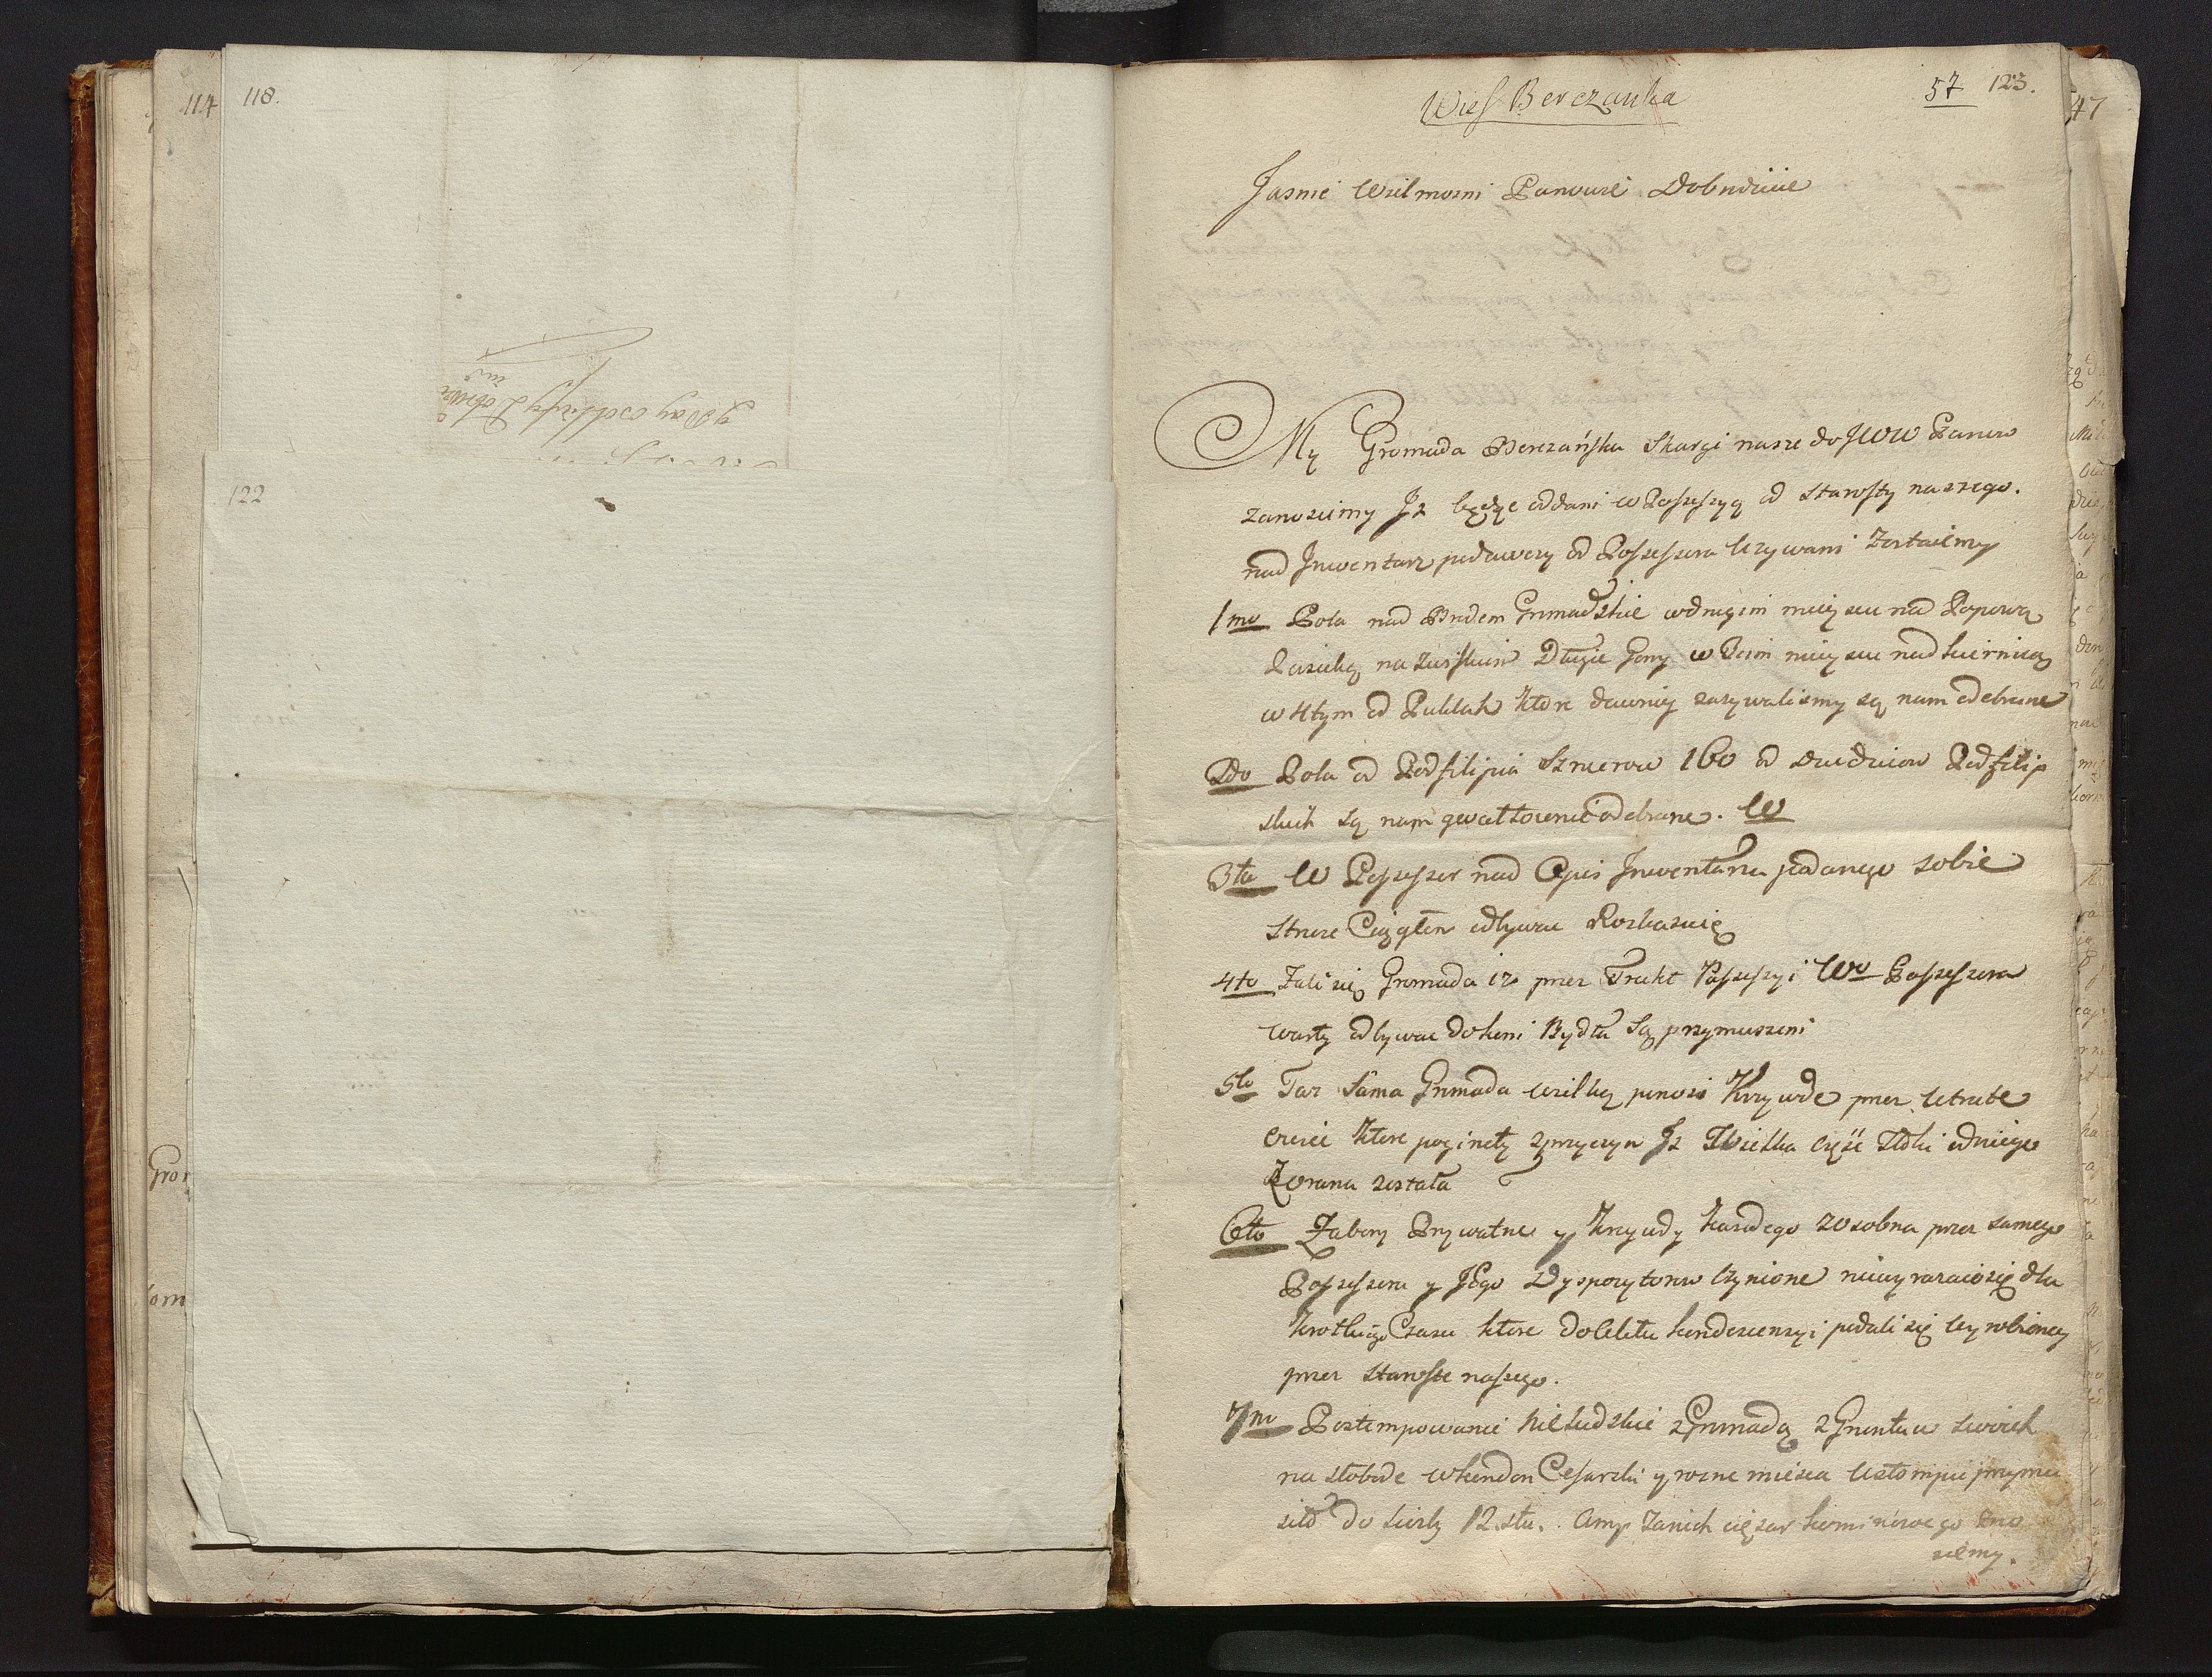 114
118.
122
Gro
om
Wies Berczanka
57 123.
47
Jasnie Wielmozni Panowie Dobrdzieie
My Gromada Berezańska Skargi nasze do JWW Panow
zanosiemy Jz będąc oddani w Possessyą od Starosty naszego.
nad Jnwentarz podawczy od Possessora Uzywani Zostaiemy
1mo Pola nad Brodem Gromadzkie w drugim mieyscu nad Popową
Pasieką na Długie Gony w 3cim mieyscu nad kiernicą
w 4tym od które dawniey zazywalismy są nam odebrane
2do Pola od Podfilipia Sznurow 160 od Podfilip
skich są nam gwałtownie odebrane. W
3tio W Possessor nad Opis Jnwentarza podanego sobie
Stroze Ciągłe odbywac Roskazuię
4to Zali się Gromada iz przez Trakt Possessyi Wo Possessora
warty odbywac do koni Bydła Są przymuszeni
5to Taz Sama Gromada wielką ponosi Krzywde przez Utrate
które poginęły z przyczyn Jz Wielka część Tłoki odniego
Zorana została
6to Zabory Prywatne y Krzywdy kazdego zosobna przez samego
Possessora y JEgo Dysporytorow Czynione niewyrazaiosię dla
krotkiego Czasu ktore do kondescensyi podali się wyrobioney
przez Staroste naszego.
7mo Postempowanie Nieludzkie z Gromadą z Gruntow swoich
na słobode w kordon Cesarski y rozne mieisca Ustompic przymu
sił do liczby 12stu. Amy Zanich cięzar kominowego zno
siemy.